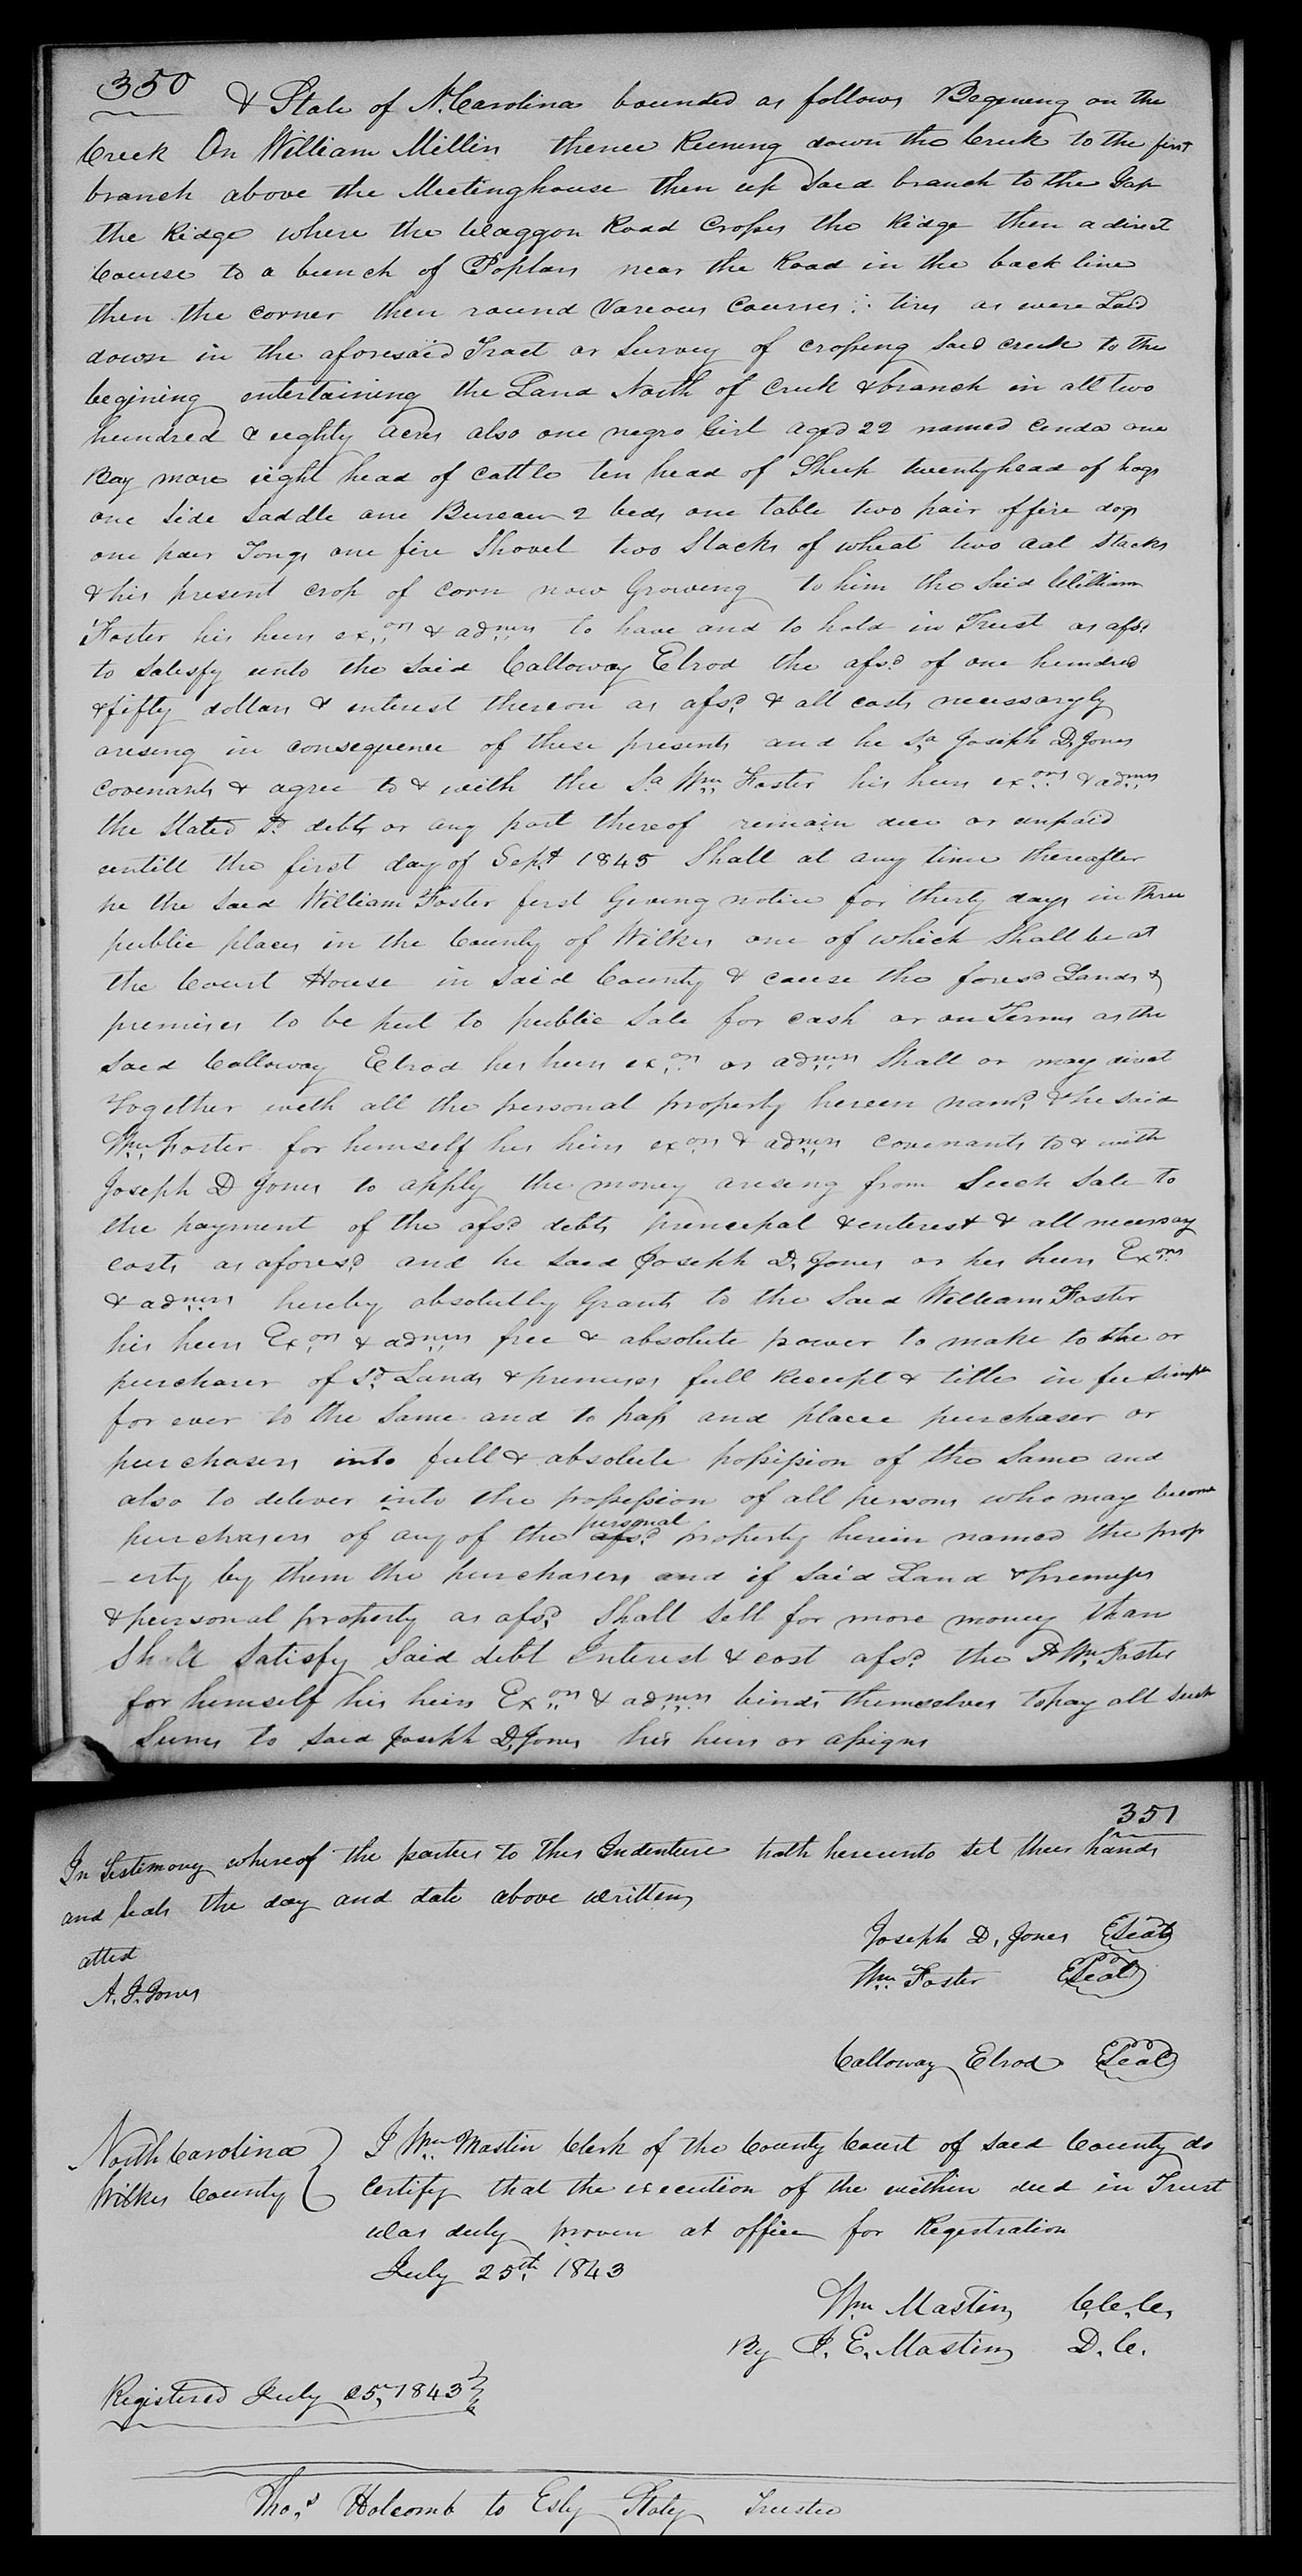 350
& State of N. Carolina bounded as follows Begining on the
Creek On William Millin thence Runing down the Creek to the first
branch above the Meetinghouse then up Said branch to the Gap
the Ridge where the Waggon Road Crosses the Ridge then a direct
Course to a bunch of Poplars near the Road in the back line
then the corner then round Vareous Courses as were Laid
down in the aforesaid Tract or Survey of crossing Said creek to the
begining entertaining the Land North of Creek & branch in all two
hundred & eighty Acres also one negro Girl aged 22 named Cinda one
Bay mare eight head of cattle ten head of Sheep twenty head of hogs
one Side Saddle one Bureau 2 beds one table two pair of fire dogs
one pair Tongs one fire Shovel two Stacks of wheat two oat Stacks
& his present crop of corn now Growing to him the Said William
Foster his heirs exors & admrs to have and to hold in Trust as afsd
to Satisfy unto the Said Calloway Elrod the afsd of one hundred
& fifty dollars & interest thereon as afsd & all costs necessaryly
areseng in consequence of these presents and he Sd Joseph D. Jones
Covenants & agree to & with the Sd Wm Foster his heirs exors & admrs
the Stated Sd debts or any part thereof remain due or unpaid
untill the first day of Sept 1845 Shall at any time thereafter
he the Said William Foster first Giveing notice for thirty days in three
public places in the County of Wilkes one of which Shall be at
the Court House in Said County & cause the foresd Lands &
premises to be put to public Sale for cash or on Terms as the
Said Calloway Elrod his heirs exors or admrs Shall or may direct
Together with all the personal property herein namd & he Said
Wm Foster for himself his heirs exors & admrs covenants to & with
Joseph D Jones to apply the money areseng from Such Sale to
the payment of the afsd debts prencepal & enterest & all necessary
costs as aforesd and he Said Joseph D. Jones or his heirs Exors
& admrs hereby absolutly Grants to the Said William Foster
his heirs Exors & admrs free & absolute power to make to the or
purchaser of Sd Lands & premises full Receipt & title in fee Simple
for ever to the Same and to pass and place purchaser or
purchasers into full & absolute possission of the Same and
also to deliver into the possession of all persons who may become
purchasers of any of the afsd personal property herein named the prop
-erty by them the purchasers and if Said Land & premises
& personal property as afsd Shall Sell for more money than
Shall Satisfy Said debt Interest & cost afsd the Sd Wm Foster
for himself his heirs Exors & admrs binds themselves to pay all Such
Sums to Said Joseph D. Jones his heirs or assigns
351
In Testimony whereof the parties to this Indenture hath hereunto Set their hands
and Seals the day and date above written
Joseph D. Jones Seal
attest
Wm Foster Seal
A. J. Jones
Calloway Elrod Seal
North Carolina I Wm Mastin Clerk of the County Court of Said County do
Wilkes County Certify that the execution of the within deed in Trust
was duly proven at office for Registration
July 25th 1843
Wm Mastin C.C.C.
By J. E. Mastin D. C.
Registered July 25, 1843
Thos Holcomb to Esly Staly Trustee